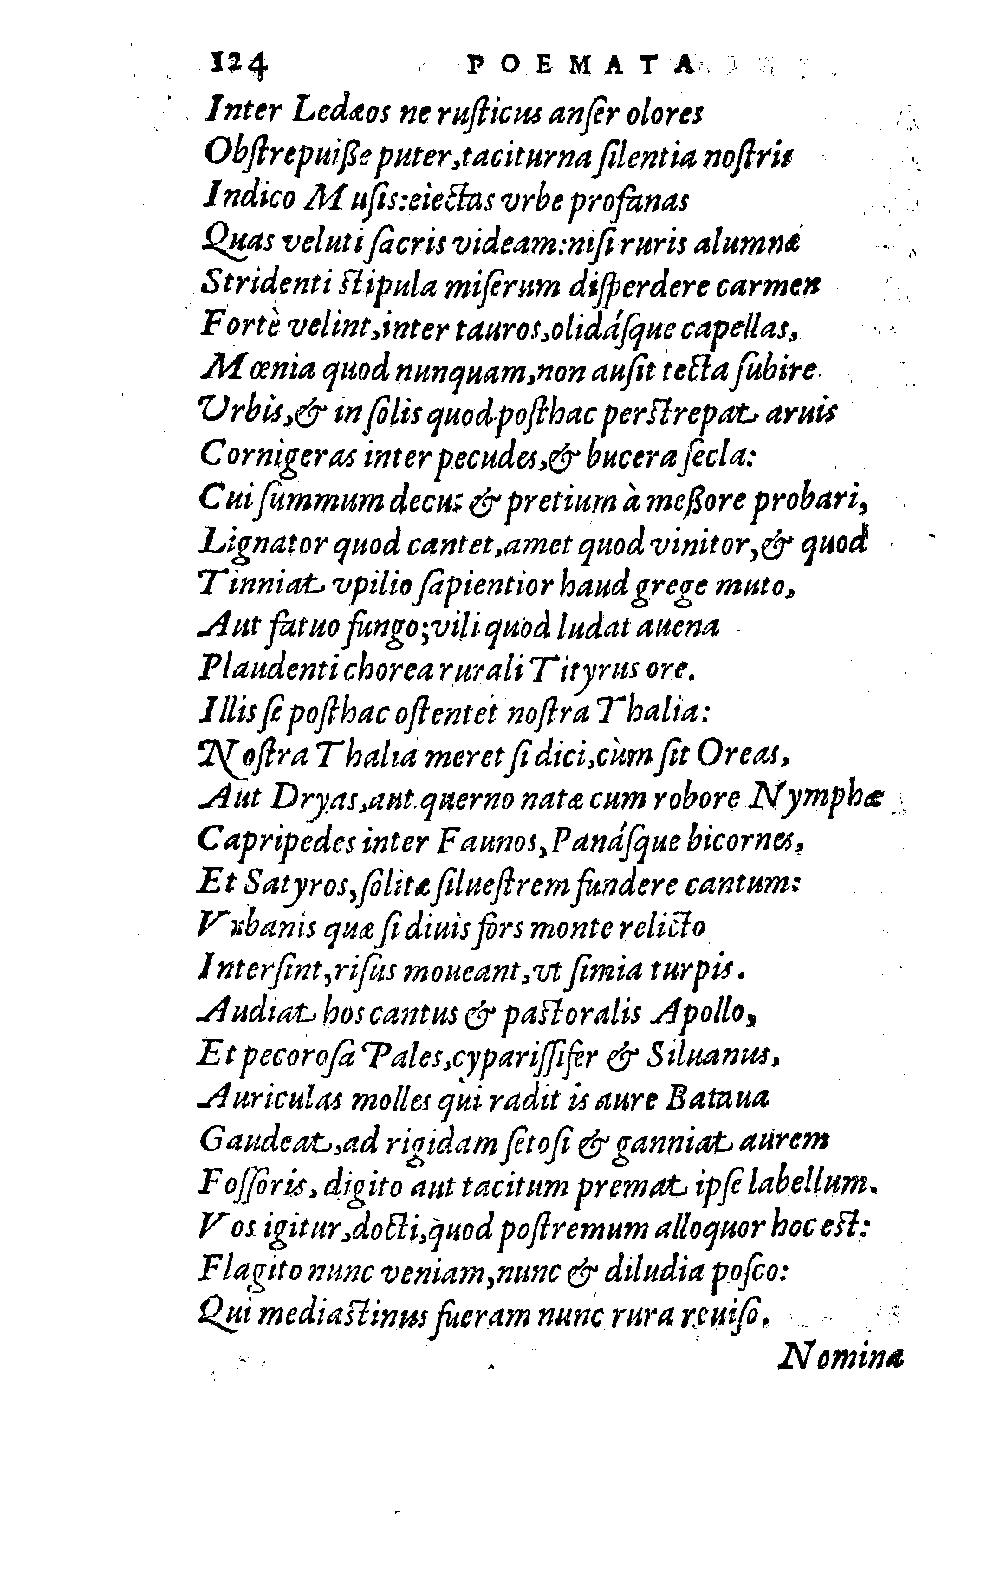 124 POEMATA
Inter Ledæos ne ruſticus anſer olores
Obſtrepuiſſe puter, taciturna ſilentia noſtris
Indico Muſis: eiectas vrbe profanas
Quas veluti ſacris videam: niſi ruris alumnæ
Stridenti ſtipula miſerum diſperdere carmen
Fortè velint, inter tauros, olidáſque capellas,
Mœnia quod nunquam, non auſit tecta ſubire
Vrbis, & in ſolis quod poſthac perſtrepat aruis
Cornigeras inter pecudes, & bucera ſecla:
Cui ſummum decus & pretium à meſſore probari,
Lignator quod cantet, amet quod vinitor, & quod
Tinniat vpilio ſapientior haud grege muto,
Aut fatuo fungo; vili quod ludat auena
Plaudenti chorea rurali Tityrus ore.
Illis ſe poſthac oſtentet noſtra Thalia:
Noſtra Thalia meret ſi dici, cùm ſit Oreas,
Aut Dryas, aut querno natæ cum robore Nymphæ
Capripedes inter Faunos, Panáſque bicornes,
Et Satyros, ſolitæ ſilueſtrem fundere cantum:
Vrbanis quæ ſi diuis fors monte relicto
Interſint, riſus moueant, vt ſimia turpis.
Audiat hos cantus & paſtoralis Apollo,
Et pecoroſa Pales, cypariſſifer & Siluanus,
Auriculas molles qui radit is aure Bataua
Gaudeat, ad rigidam ſetoſi & ganniat aurem
Foſſoris, digito aut tacitum premat ipſe labellum.
Vos igitur, docti, quod poſtremum alloquor hoc eſt:
Flagito nunc veniam, nunc & diludia poſco:
Qui mediaſtinus fueram nunc rura reuiſo.
Nomina